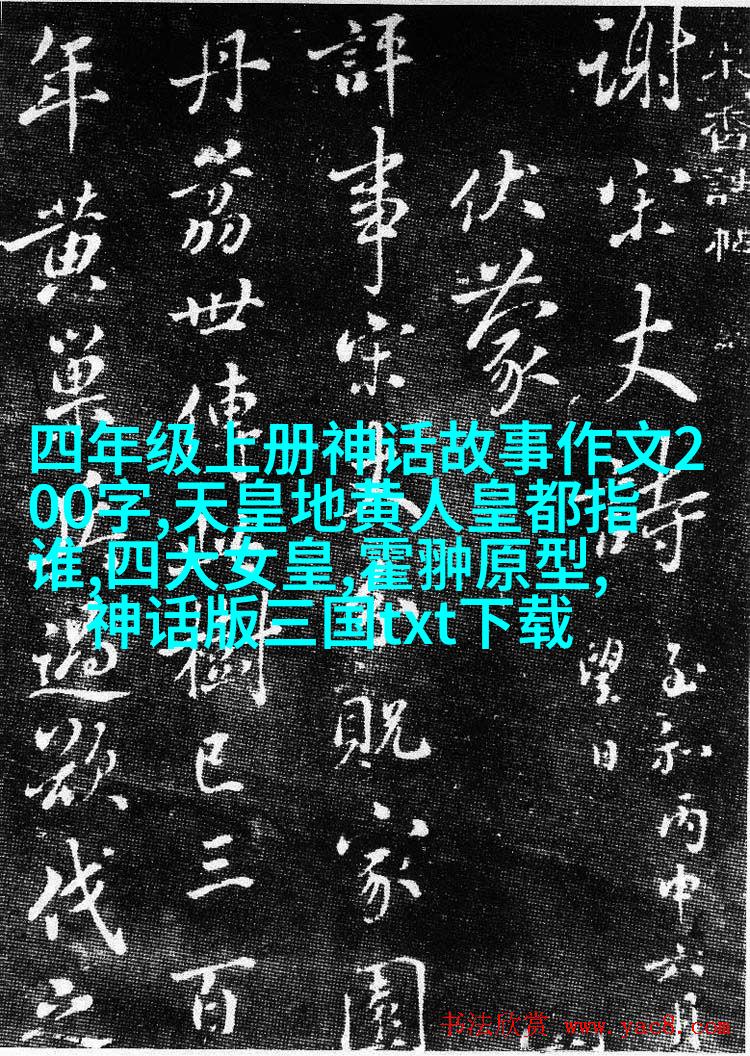 四年级上册神话故事作文2
00字,天皇地黄人皇都指
谁,四大女皇,霍翀原型,
神话版三国txt下载
謝宋丈詩
至和丙申六月
望日
伏蒙
評事宋貺家園
丹荔世傳樹已三百
年黄巢兵過欲伐之
书法欣赏 www.yac8.com